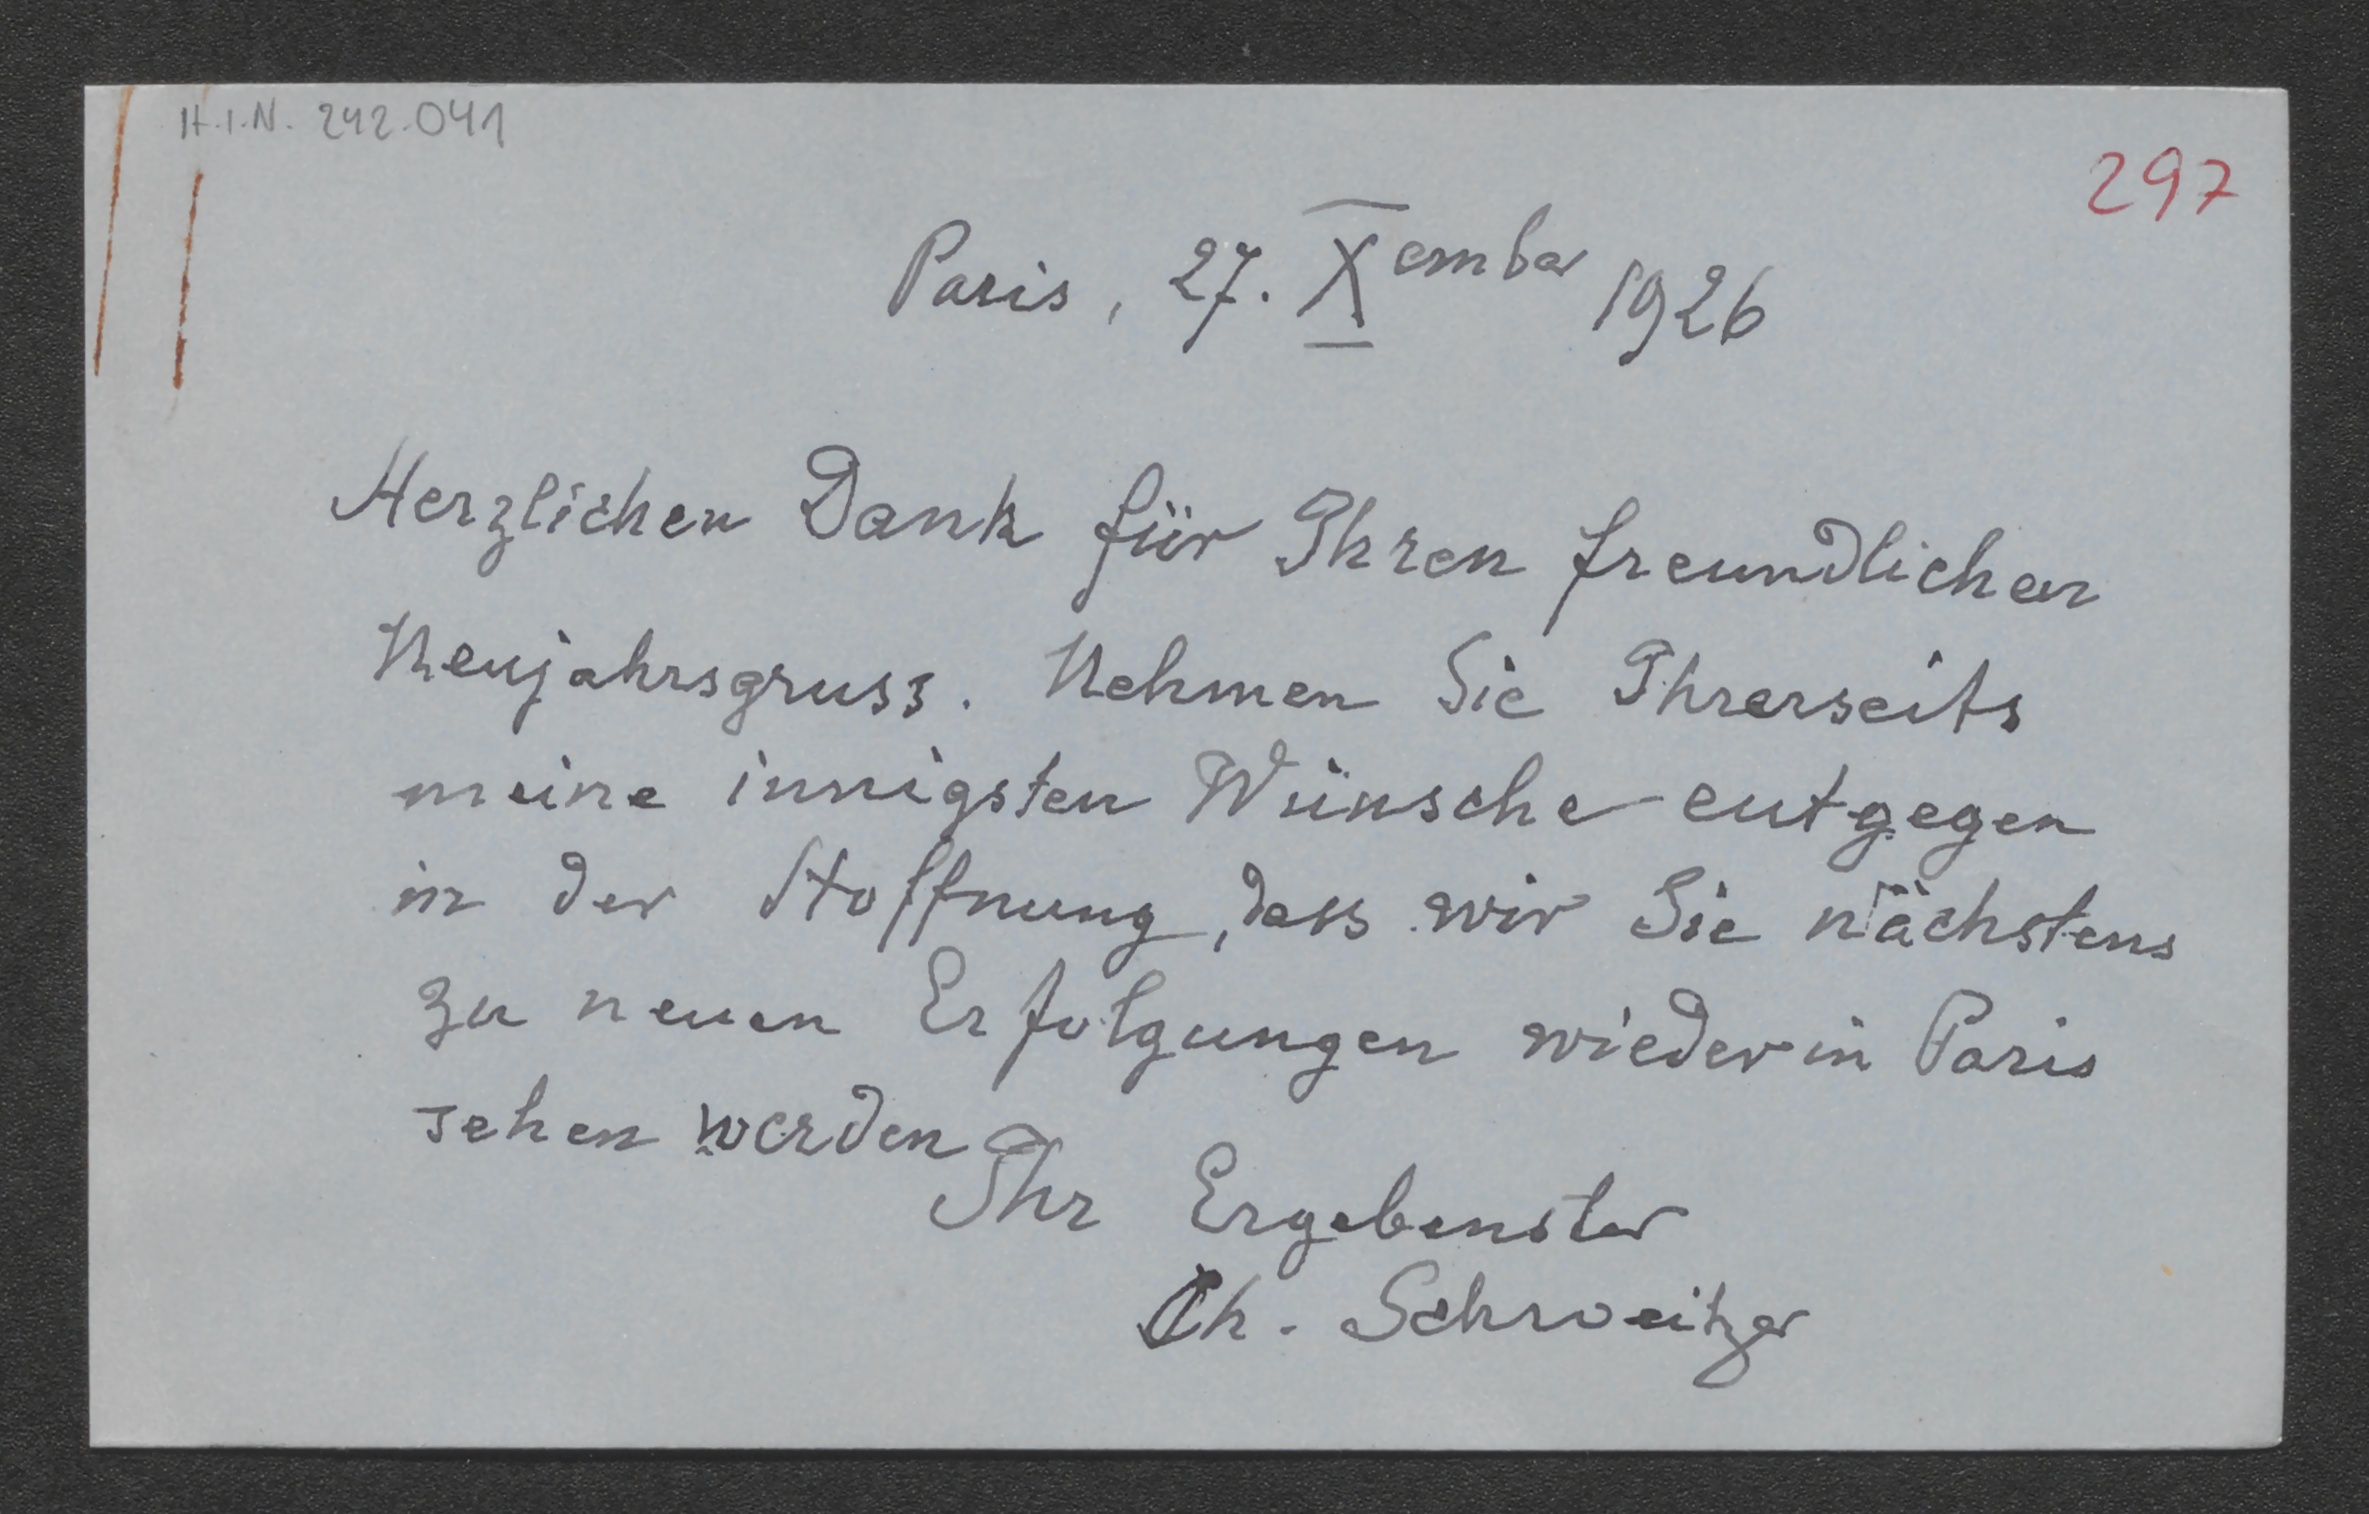 H.I.N. 242.041
297
Paris, 27. Xember 1926
Herzlichen Dank für Ihren freundlichen
Neujahrsgruss. Nehmen Sie Ihrerseits
meine innigsten Wünsche entgegen
in der Hoffnung, dass wir Sie nächstens
zu neuen Erfolgungen wieder in Paris
sehen werden
Ihr Ergebenster
Ch. Schweitzer